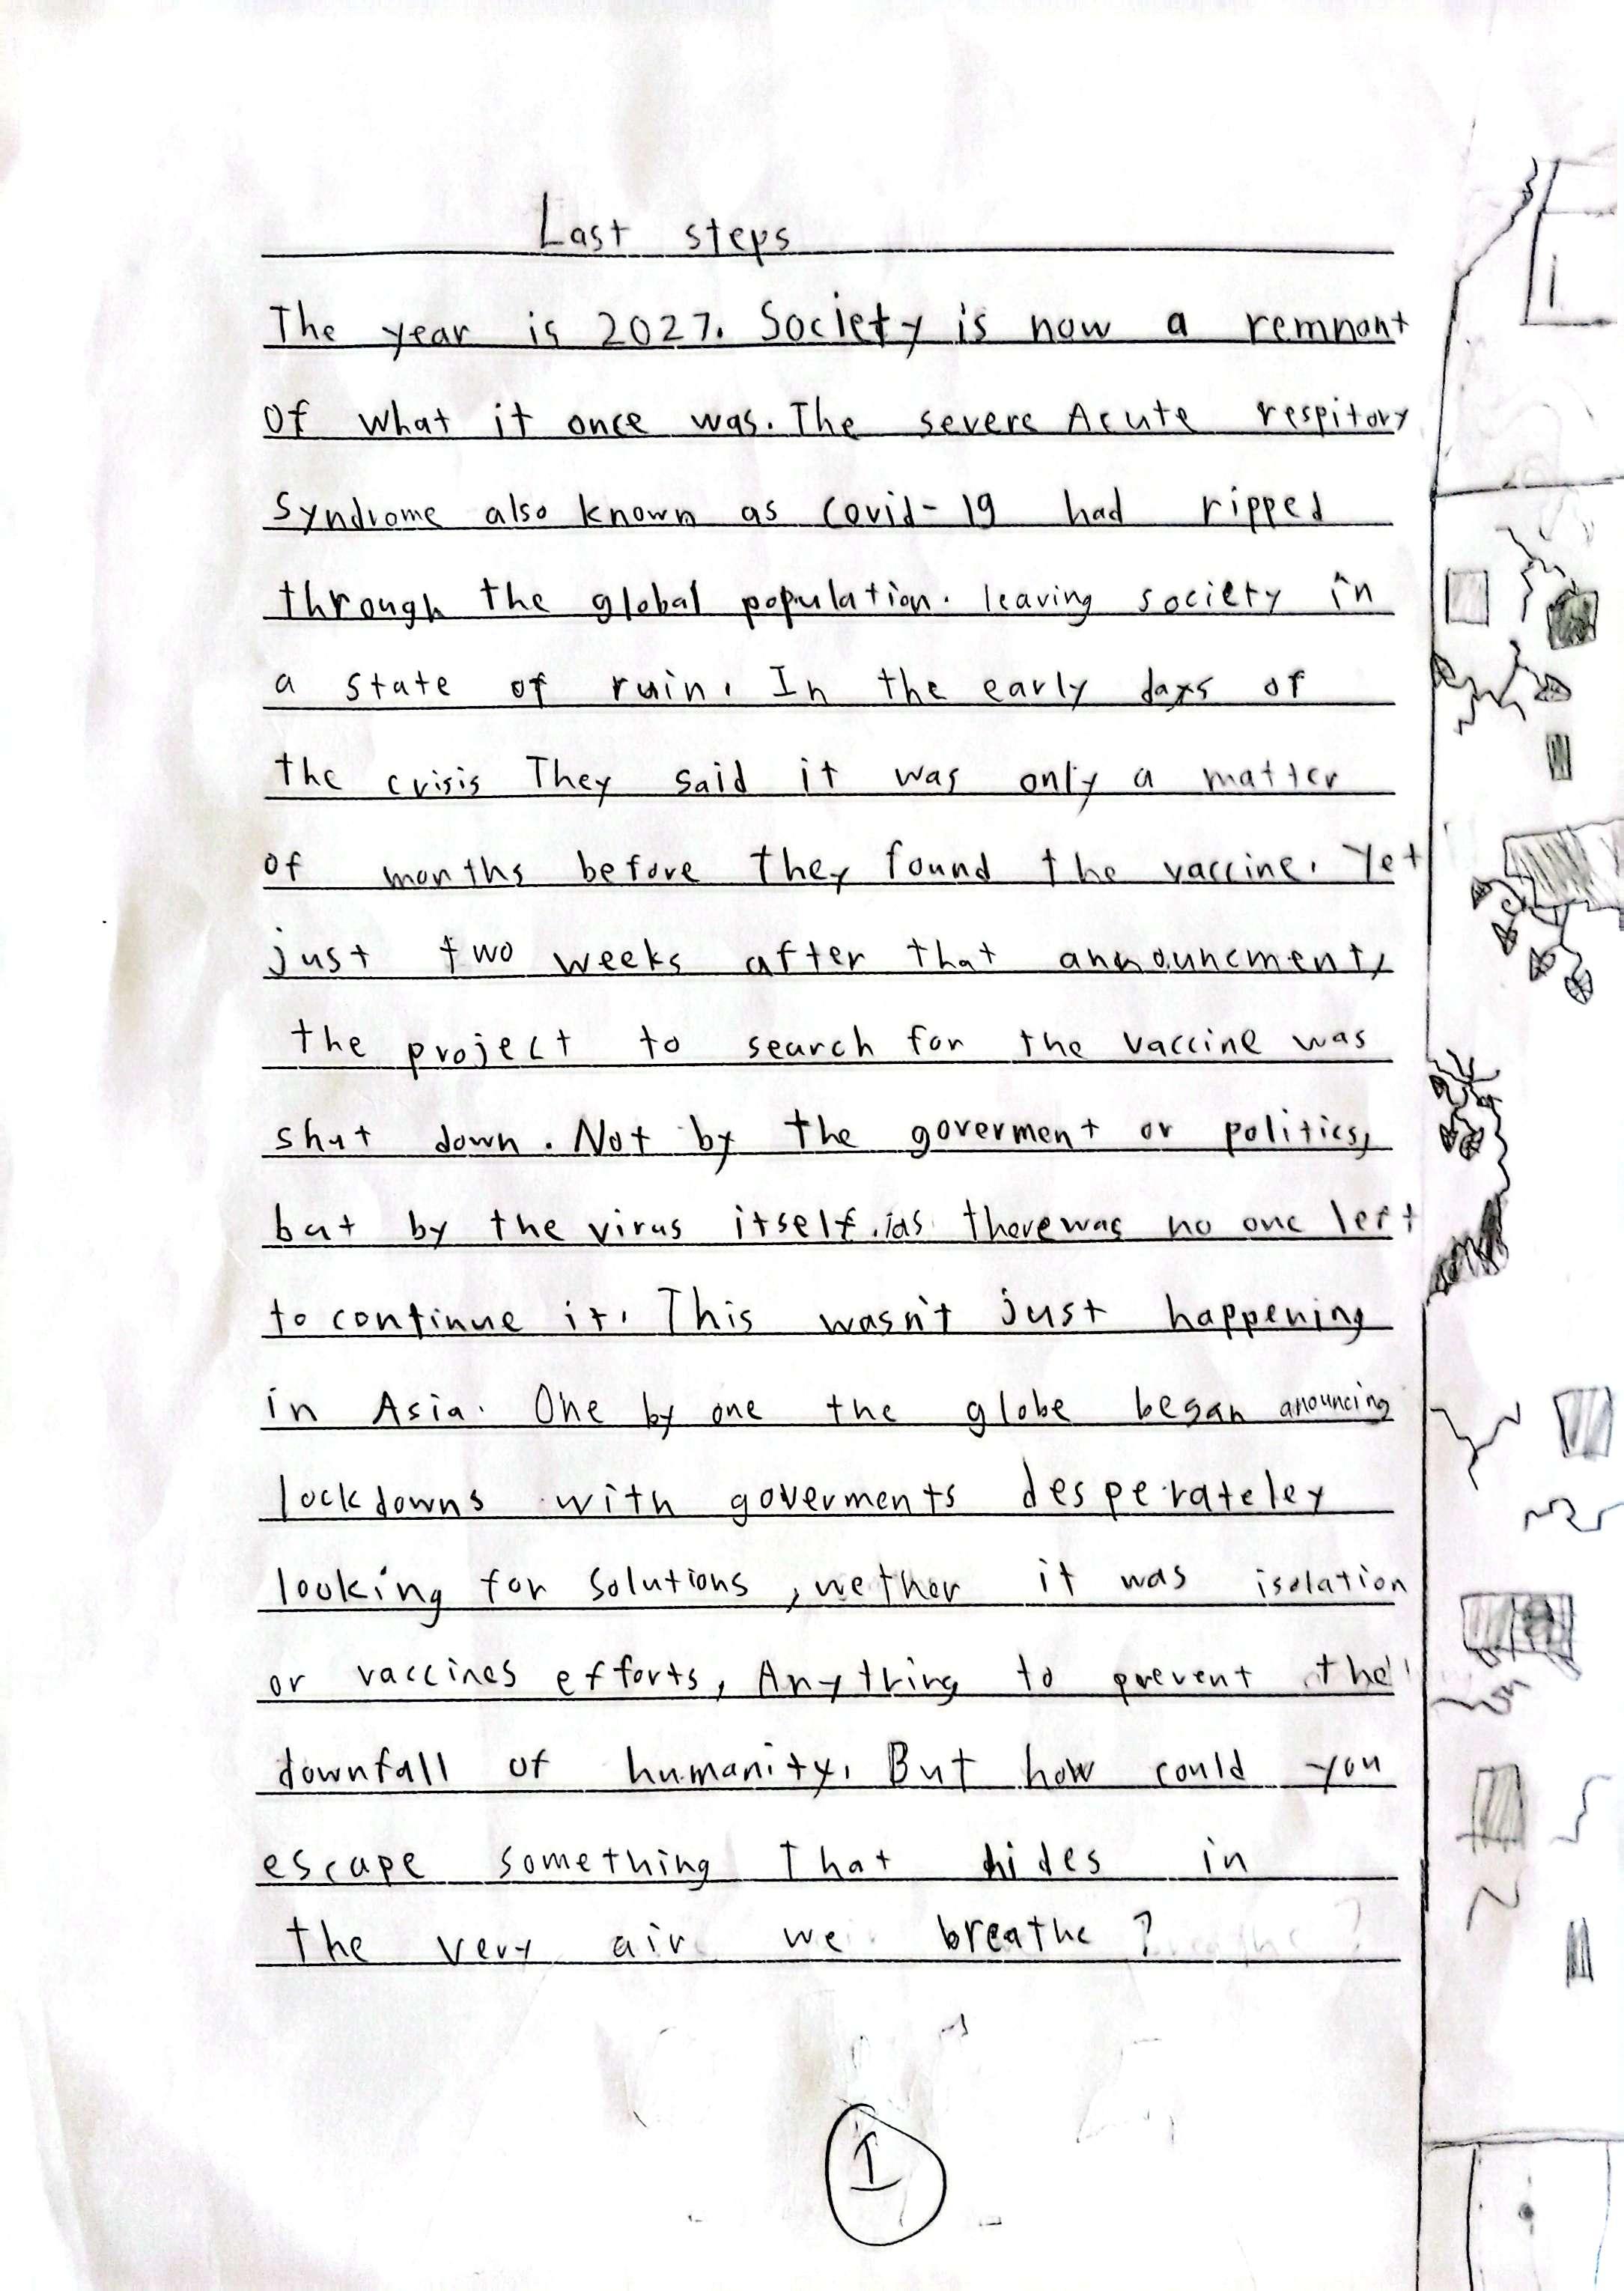 Last steps
The year is 2027. Society is now a remnant
of what it once was. The severe Acute respitory
Syndrome also known as covid-19 had ripped
through the global population. leaving society in
a state of ruin. In the early days of
the crisis They said it was only a matter
of months before they found the vaccine. Yet
just two weeks after that announcment,
the project to search for the vaccine was
shut down. Not by the goverment or politics,
but by the virus itself. as there was no one left
to continue it. This wasn't just happening
in Asia. One by one the globe began anouncing
lockdowns with goverments desperateley
looking for solutions, wether it was isolation
or vaccines efforts, Anything to prevent the
downfall of humanity. But how could you
escape something that hides in
the very air we breathe?
1